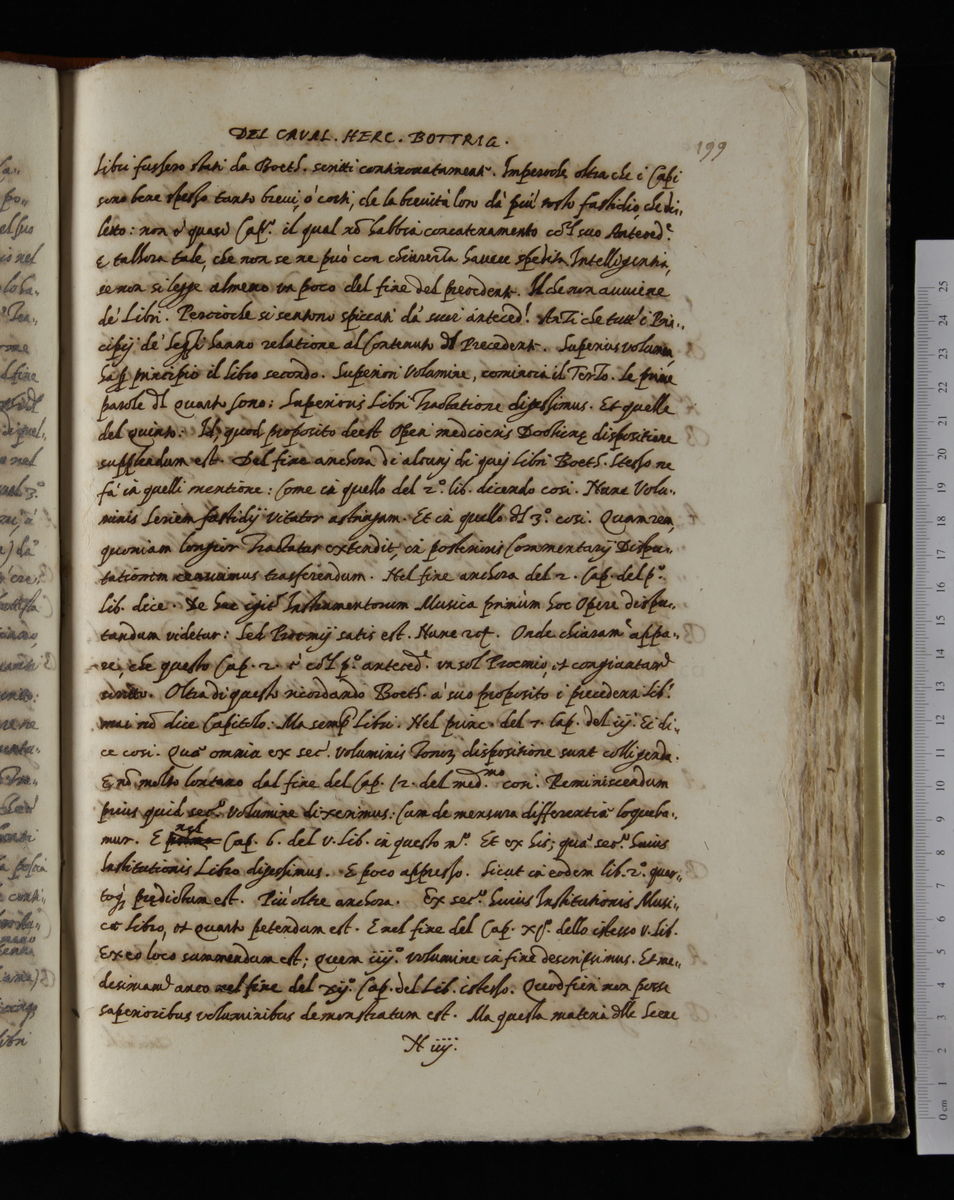 DEL CAVAL. HERC. BOTTRIG.
199
libri fussero stati da Boet. scritti continouatament. Imperoche oltra che i Capi
sono bene spesso tanto breui, ó corti, che la breuità loro dà piu tosto fastidio, che di,,
letto: non è quasi Cap.º il qual nō habbia concatenamento cō'l suo Anteced.e
E tallhora tale, che non se ne può con chiarezza hauere spedita Intelligentia,
se non si legge almeno un poco del fine del precedent. Il che non auuiene
de' Libri. Percioche si sentono spiccati dà suoi anteced.i Anzi che tutti i Prī,,
cipij de' hanno relatione al Contenuto dl Precedent. Superius volumen
hà p principio il libro secondo. Superiori Volumine, comincia il Terzo. Le prime
parole dl Quarto sono: Superioris Libri Tractatione digessimus. Et quelle
del quinto. Id, quod proposito deest Operi mediocris Doctrinę dispositione
supplendum est. Del fine anchora di alcunj di quej libri Boet. stesso ne
fà in quelli mentione: Come in quello del 2.º lib. dicendo cosi. Nunc Volu,,
minis seriem fastidij vitator astringam. Et in quello dl 3.º cosi. Quam rem,
quoniam longior Tractatus extendit, in posterioris Commentarij Dispu,,
tationem trasferendum. Nel fine anchora del 2. Cap. del p.º
lib. dice. De hac igit.r Instrumentorum Musica primùm hoc Opere dispu,,
tandum videtur: Sed Proemij satis est. Nunc Onde chiaram.e appa,,
re, che questo Cap. 2. è cō'l p.º anteced.e un sol Proemio, et congiuntam.e
scritto. Oltra di questo ricordando Boet. à suo proposito i precedenti lib.i
mai nō dice Capitolo: Ma semp Libri. Nel princ. del Cap. del iij. Ei di,,
ce cosi. Quā omnia ex sec.i voluminis Tonoꝝ dispositione sunt colligenda.
E nō molto lontano dal fine del Cap. 12. del med.mo con. Reminiscendum
prius quid sec.º volumine diximus: Cum de mensura differentia loqueba,,
mur. E nel Cap. 6. del v. Lib. in questo m.º Et ex his; quą sec.º huius
Institutionis Libro digessimus. E poco appresso. Sicut in eodem lib. 2.º quar,,
toq, predictum est. Più oltre anchora. Ex sec.º huius Institutionis Musi,,
cę Libro, et quarto petendum est. E nel fine del Cap. xj.º dello istesso v. lib.
Ex eo loco summendum est; Quem iiij.º volumine in fine descripsimus. Et me,,
desimam.e anco nel fine del xij.º Cap. del Lib. istesso. Quod fieri non posse
superioribus voluminibus demonstratum est. Ma questa materia dlle
N iiij.